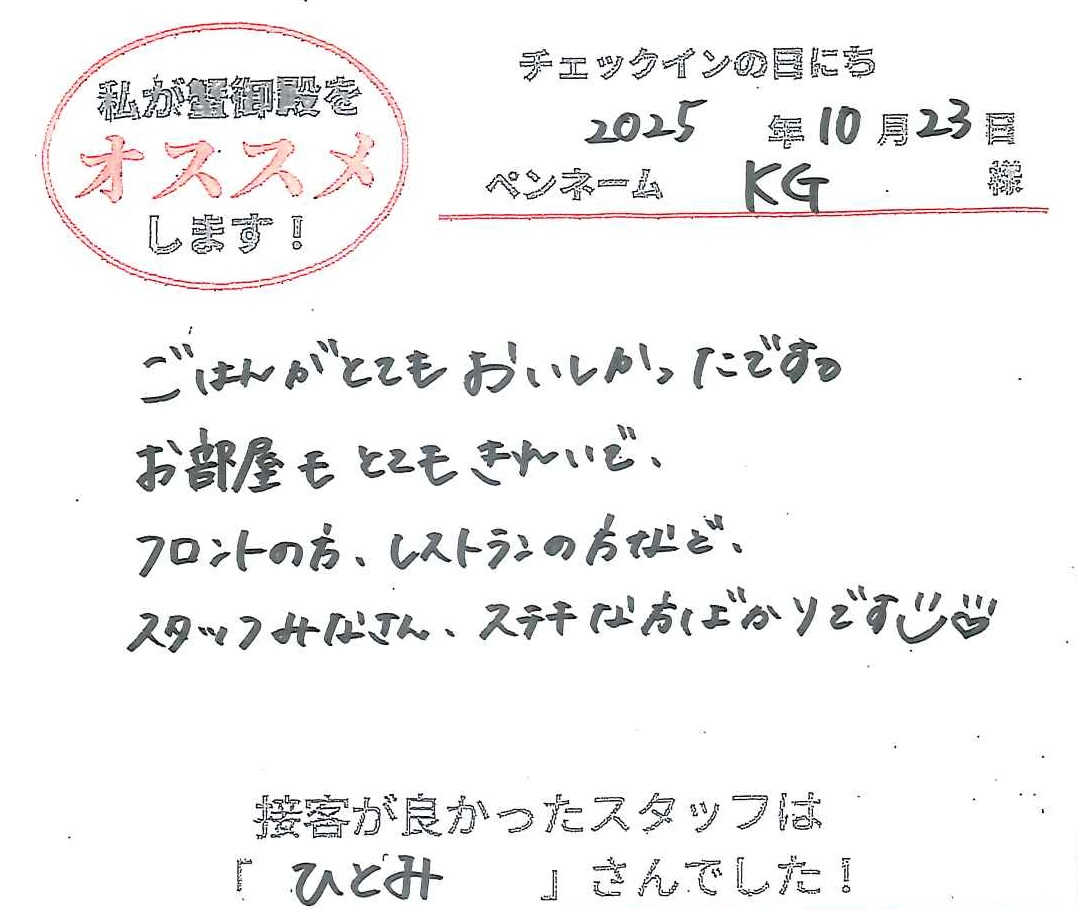 私が蟹御殿を
オススメ
します！
チェックインの日にち
2025 年 10 月 23 日
ペンネーム KG 様
ごはんがとてもおいしかったです。
お部屋もとてもきれいで、
フロントの方、レストランの方など、
スタッフみなさん、ステキな方ばかりです
接客が良かったスタッフは
「 ひとみ 」さんでした！